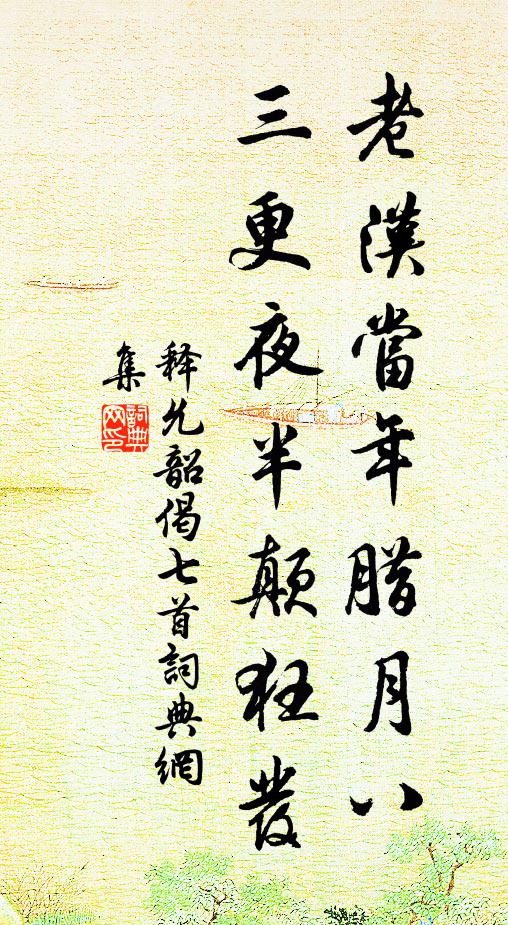 老漢當年腊月八
三更夜半顛狂發
释允韶偈七首詞典網
集
詞典
网印